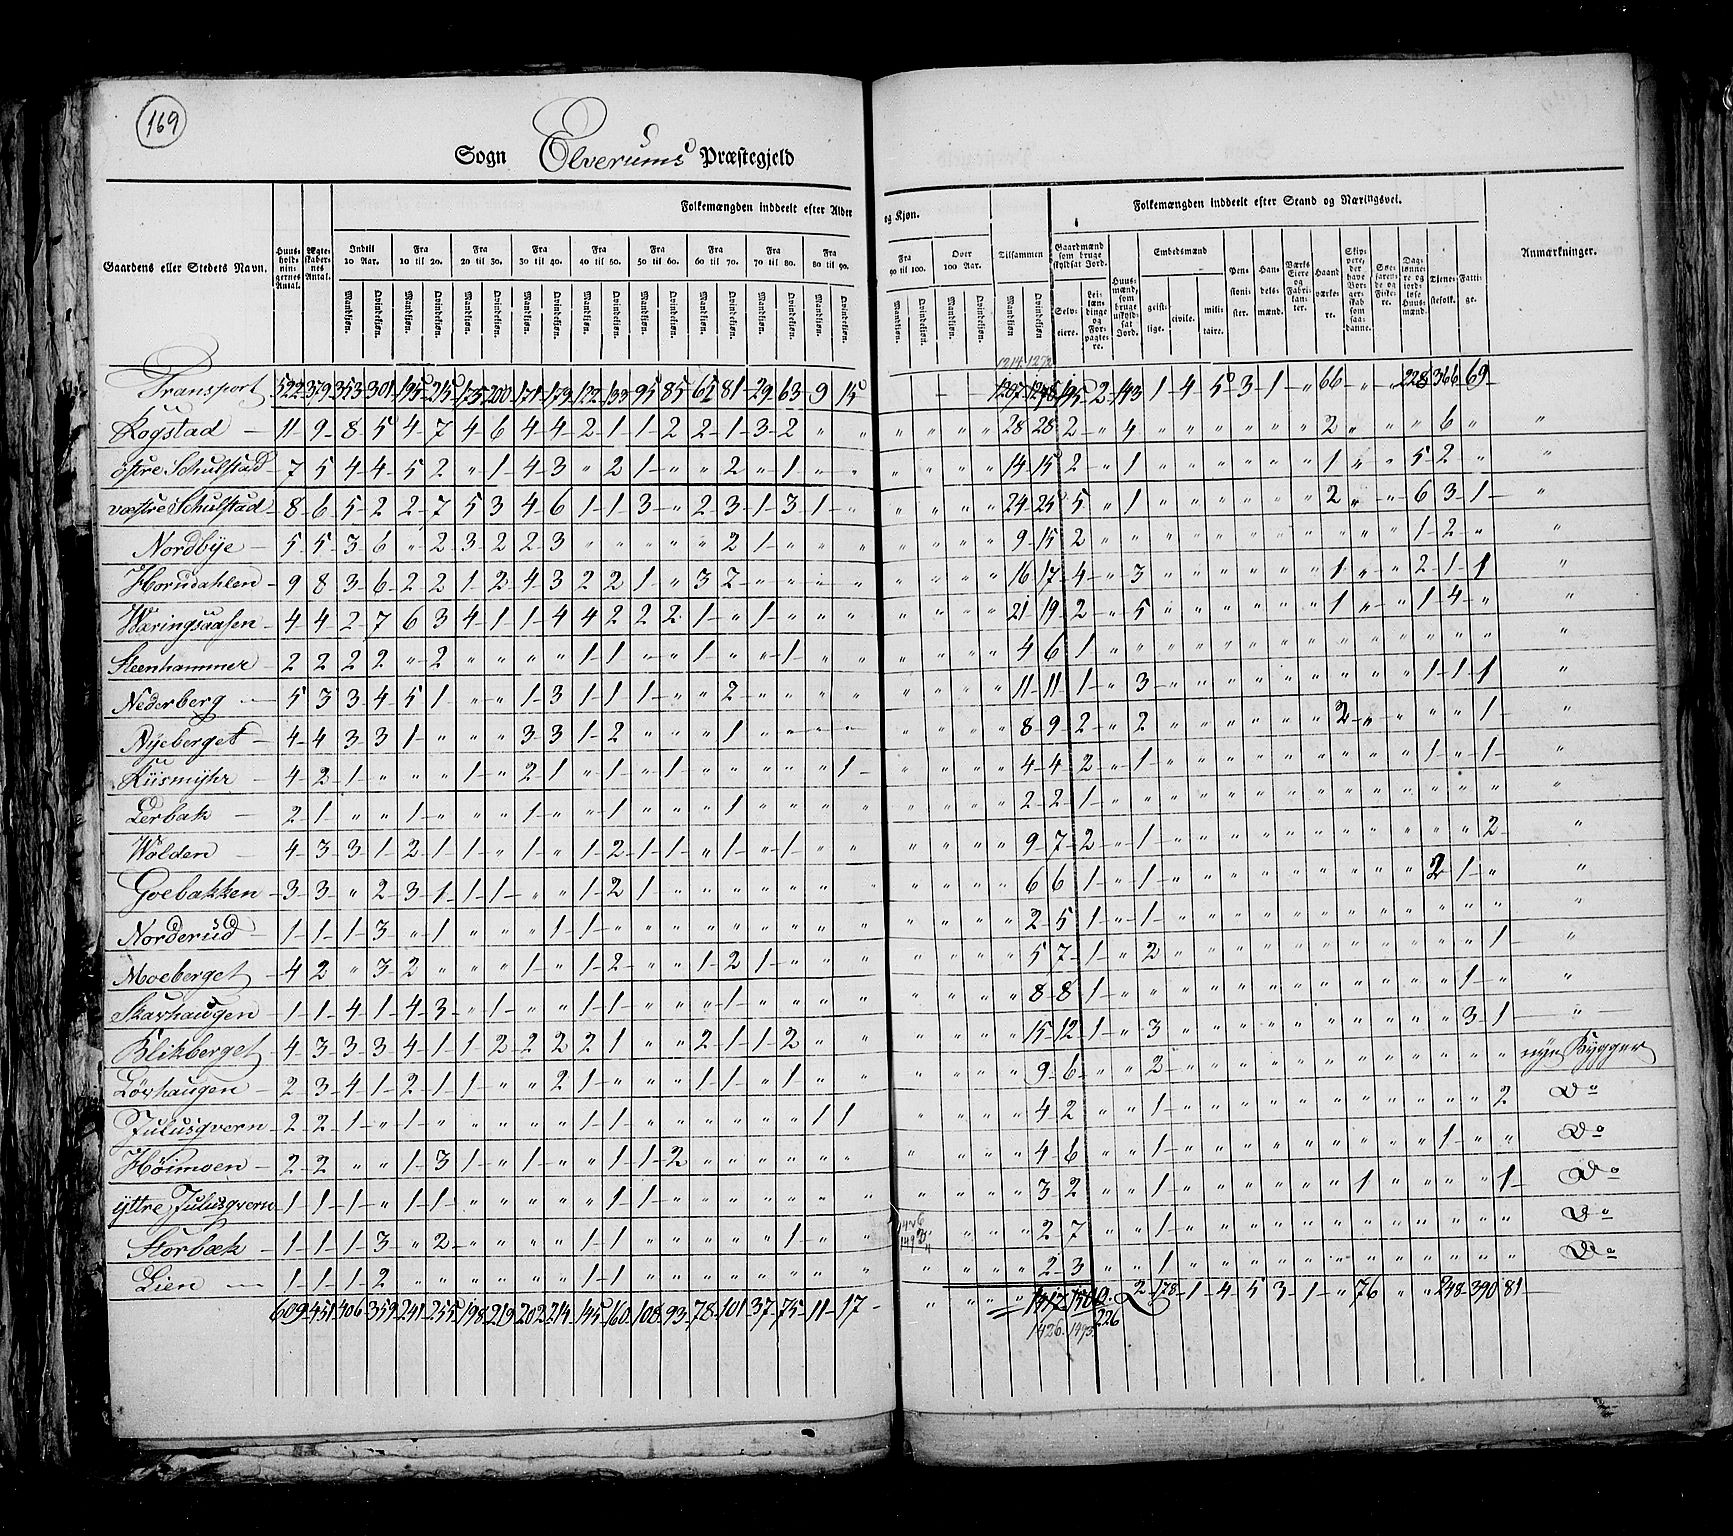 169
Sogn Elverums Præstegjeld
Gaardens eller Stedets Navn.
Huusholdningernes Antal.
Ægteskabernes Antal.
Folkemængden inddeelt efter Alder og Kjøn.
Indtil 10 Aar. Fra 10 til 20. Fra 20 til 30. Fra 30 til 40. Fra 40 til 50. Fra 50 til 60. Fra 60 til 70. Fra 70 til 80. Fra 80 til 90. Fra 90 til 100. Over 100 Aar. Tilsammen
Mandkjøn. Qvindekjøn.
Folkemængden inddeelt efter Stand og Næringsvei.
Gaardmænd som bruge skyldsat Jord. Selveiere. Leilændinge og Forpagtere.
Huusmænd som bruge uskyldsat Jord.
Embedsmænd geistlige. civile. militaire.
Pensionister. Handelsmænd. Værks Eiere og Fabrikanter. Haandværkere.
Skippere, der have Borgerskab som saadanne.
Tjenestefolk. Fattige.
Anmærkninger.
1214 1272
Transport 522 379 353 301 195 215 175 200 171 173 122 133 95 85 62 81 29 63 9 15 195 2 143 1 4 5 3 1 " 66 " " 228 366 69
Kogstad 11 9 8 5 4 7 4 6 4 4 2 1 1 2 2 1 3 2 " " " " " " 28 28 2 " 4 " " " " " " 2 " " " 6 " "
østre Schulstad 7 5 4 4 5 2 " 1 4 3 " 2 1 " " 2 " 1 " " " " " " 14 15 2 " 1 " " " " " " 1 " " 5 2 " "
væstre Schulstad 8 6 5 2 2 7 5 3 4 6 1 1 3 " 2 3 1 3 1 " " " " " 24 25 5 " 1 " " " " " " 2 " " 6 3 1 "
Nordbÿe 5 5 3 6 " 2 3 2 2 3 " " " " " 2 1 " " " " " " " 9 15 2 " " " " " " " " " " " 1 2 " "
Horndahlen 9 8 3 6 2 2 1 2 4 3 2 2 1 " 3 2 " " " " " " " " 16 17 4 " 3 " " " " " " 1 " " 2 1 1 "
Wæringsaasen 4 4 2 7 6 3 4 1 1 4 4 2 2 2 1 " 1 " " " " " " " 21 19 2 " 5 " " " " " " 1 " " 1 4 " "
Steenhammer 2 2 2 2 " 2 " " " " 1 1 " " 1 " " 1 " " " " " " 4 6 1 " " " " " " " " " " " " " " "
Nederberg 5 3 3 4 5 1 " " 1 3 1 1 1 " " 2 " " " " " " " " 11 11 1 " 3 " " " " " " " " " 1 1 1 "
Nÿeberget 4 4 3 3 1 " " " 3 3 1 2 " " " 1 " " " " " " " " 8 9 2 " 2 " " " " " " 2 " " " " 1 "
Kiismÿhr 4 2 1 " " " 1 " 2 1 " 1 " 1 " " " " " 1 " " " " 4 4 2 " 1 " " " " " " " " " 1 " 1 "
Lerbak 2 1 " " 1 " " " 1 " " 1 " " " 1 " " " " " " " " 2 2 1 " " " " " " " " " " " " " " "
Wolden 4 3 3 1 2 1 1 " 1 " 1 2 1 1 " 1 " 1 " " " " " " 9 7 2 " 1 " " " " " " " " " " " 2 "
Goebakken 3 3 " 2 3 1 1 1 " " 1 2 1 " " " " " " " " " " " 6 6 1 " 1 " " " " " " " " " 2 1 " "
Norderud 1 1 1 3 " 1 " " " 1 1 " " " " " " " " " " " " " 2 5 1 " 1 " " " " " " " " " " " " "
Moeberget 4 2 " 3 2 " " " 1 " 1 2 " " 1 2 1 " " " " " " " 5 7 1 " 2 " " " " " " " " " " " 1 "
Skarhaugen 1 1 4 1 4 3 " 1 " " 1 1 " " " 1 " " " " " " " " 8 8 1 " " " " " " " " " " " " 1 " "
Klikberget 4 3 3 3 4 1 1 2 2 2 2 1 " " 2 1 1 2 " " " " " " 15 12 1 " 3 " " " " " " " " " " 3 1 "
Lørhaugen 2 3 4 1 2 1 1 " " 2 1 " " " 1 1 " 1 " " " " " " 9 6 " " 2 " " " " " " " " " " " " nye Bygger
Julusqvern 2 2 1 " 1 " " " " " 1 1 " " " " " " 1 1 " " " " 4 2 " " 1 " " " " " " " " " " " 2 Do
Høimoen 2 2 " " 1 3 1 " 1 " " 1 1 2 " " " " " " " " " " 4 6 " " 1 " " " " " " " " " " 1 " Do
ÿttre Julusqvern 1 1 1 " 1 1 " " " " " 1 1 " " " " " " " " " " " 3 2 " " 1 " " " " " " 1 " " " " 1 Do
Storbæk 1 1 1 3 " 2 " " " " 1 1 " " " " " 1 " " " " " " 2 7 " " 1 " " " " " " " " " " " " Do
Lien 1 1 1 2 " " " " " " 1 1 " " " " " " " " " " " " 2 3 " " 1 " " " " " " " " " " " " Do
609 451 406 359 241 255 198 219 202 214 145 160 108 93 78 101 37 75 11 17 " " " " 2 178 1 4 5 3 1 " 76 " " 248 390 81
1426 1493 226